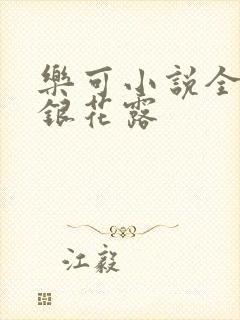 樂可小說全
銀花露
江毅